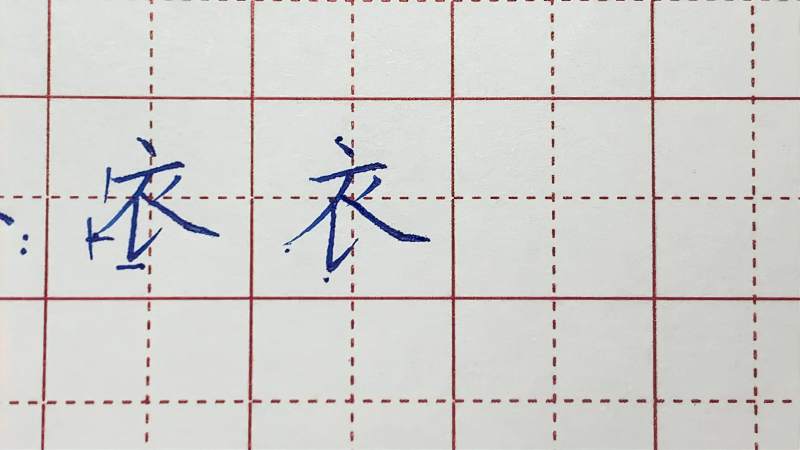 ：衣 衣